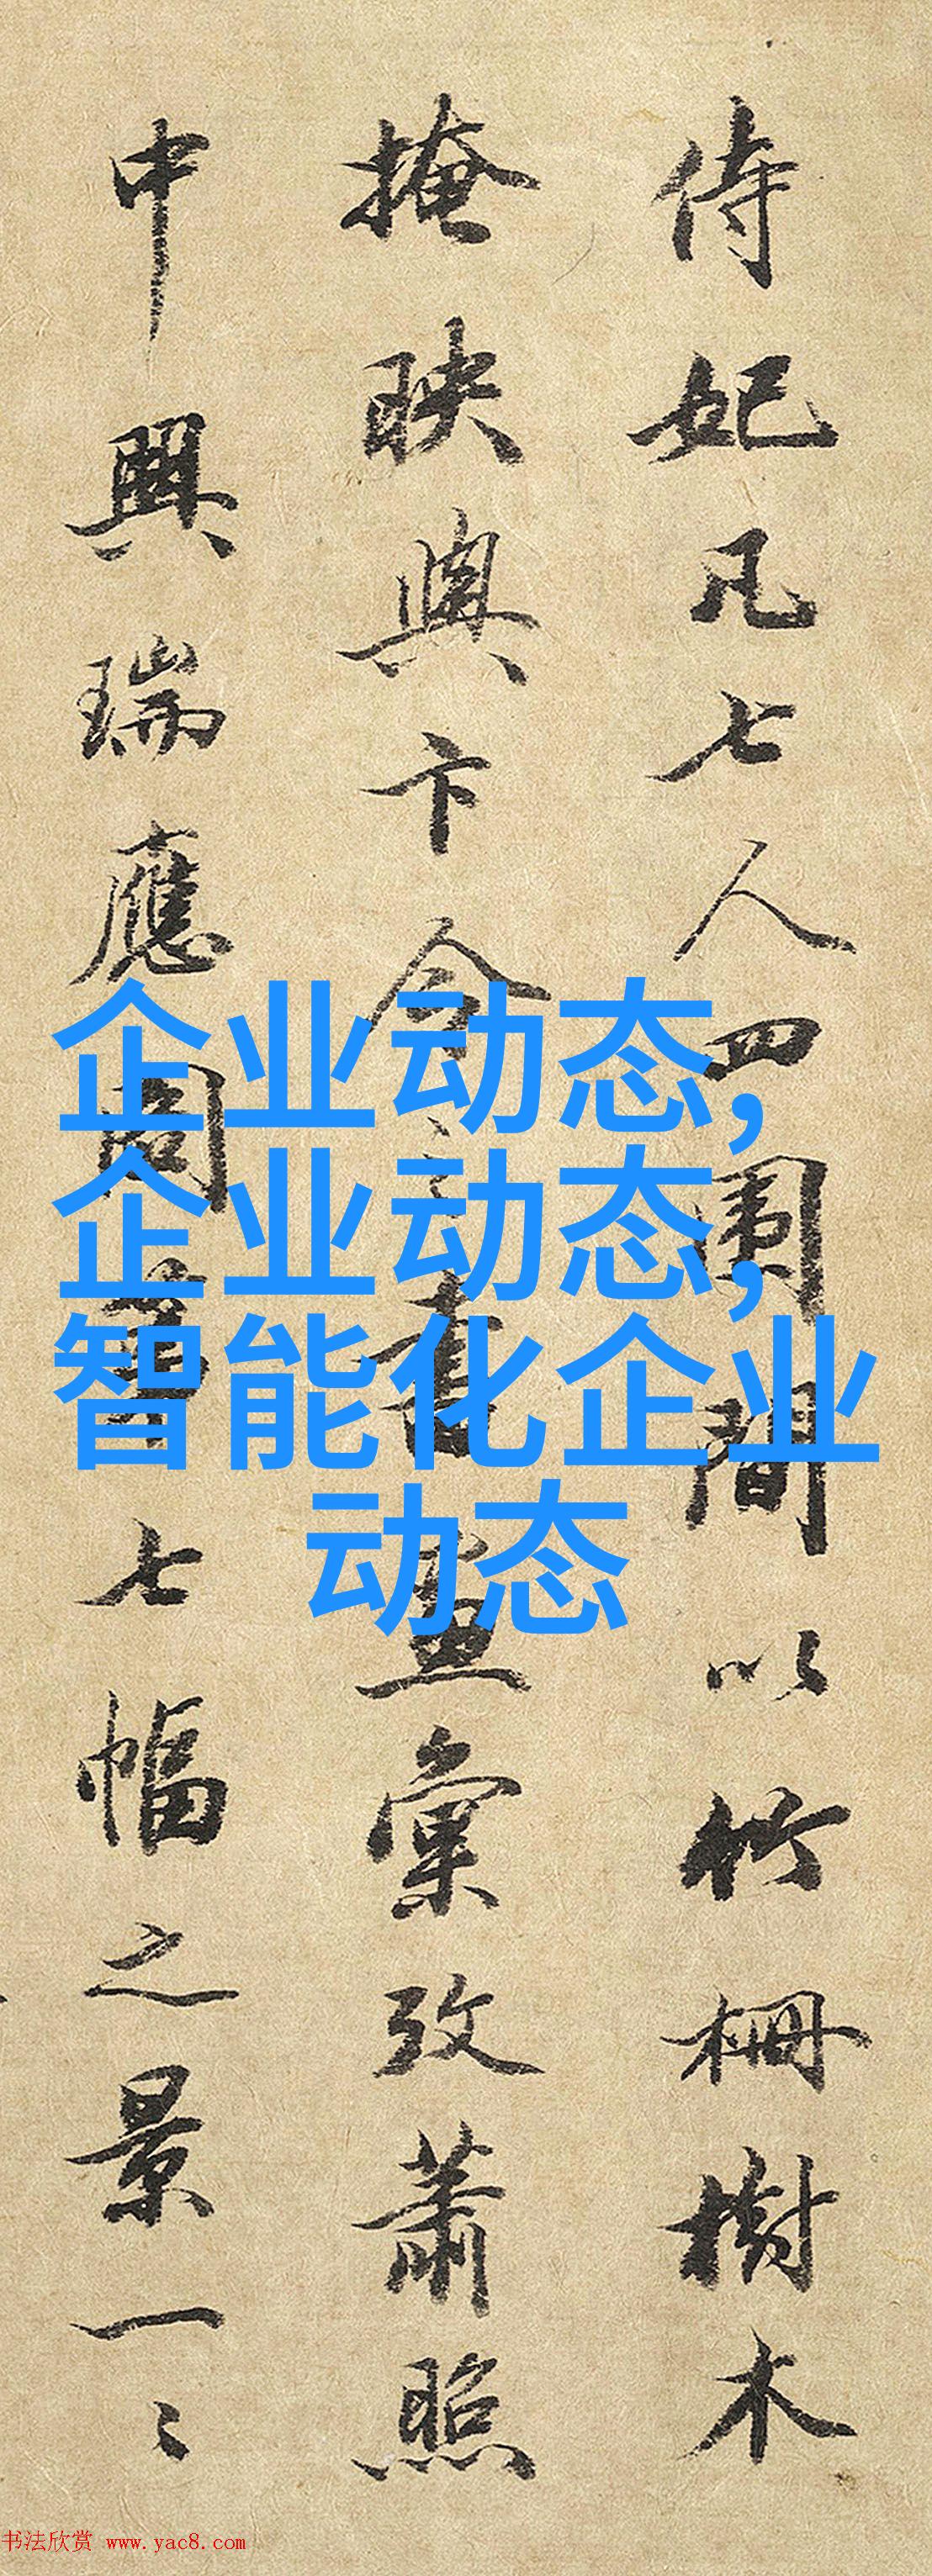 侍妃凡七人四圍間以竹柵樹木
掩映與卞令之書畫彙攷蕭照
中興瑞應圖
七幅之景一〻
企业动态,
企业动态,
智能化企业
动态
书法欣赏 www.yac8.com